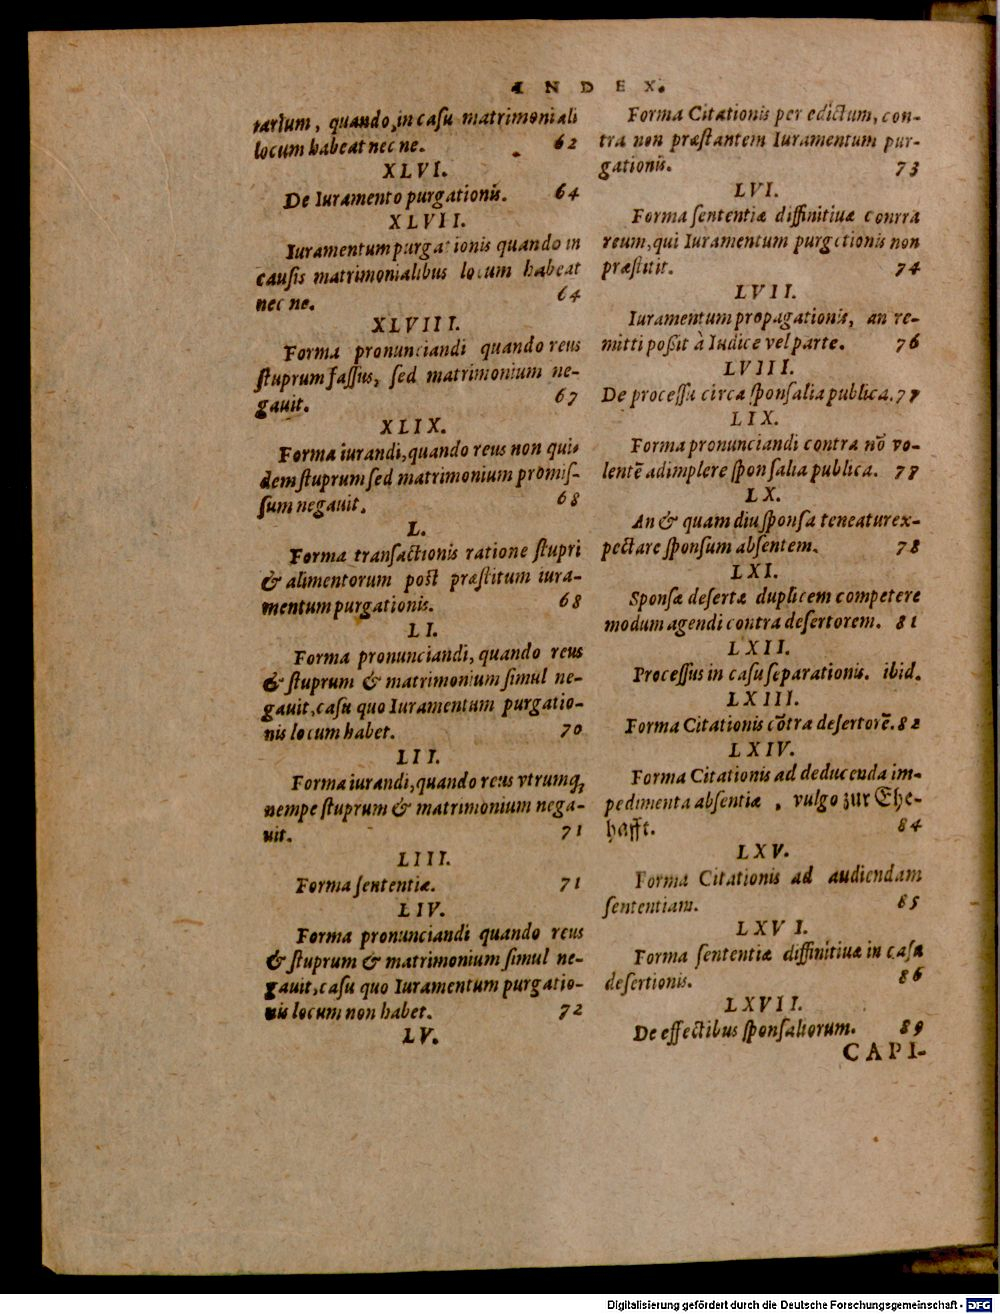 INDEX.
tarium, quando, in casu matrimoniali
locum habeat nec ne. 62
XLVI.
De Iuramento purgationis. 64
XLVII.
Iuramentum purgationis quando in
causis matrimonialibus locum habeat
nec ne. 64
XLVIII.
Forma pronunciandi quando reus
stuprum fassus, sed matrimonium ne-
gauit. 67
XLIX.
Forma iurandi, quando reus non qui-
dem stuprum sed matrimonium promis-
sum negauit. 68
L.
Forma transactionis ratione stupri
& alimentorum post præstitum iura-
mentum purgationis. 68
LI.
Forma pronunciandi, quando reus
& stuprum & matrimonium simul ne-
gauit, casu quo Iuramentum purgatio-
nis locum habet. 70
LII.
Forma iurandi, quando reus vtrumq;
nempe stuprum & matrimonium nega-
uit. 71
LIII.
Forma sententiæ. 71
LIV.
Forma pronunciandi quando reus
& stuprum & matrimonium simul ne-
gauit, casu quo Iuramentum purgatio-
nis locum non habet. 72
LV.
Forma Citationis per edictum, con-
tra non præstantem Iuramentum pur-
gationis. 73
LVI.
Forma sententiæ diffinitiuæ conrra
reum, qui Iuramentum purgationis non
præstitit. 74
LVII.
Iuramentum propagationis, an re-
mitti possit à Iudice vel parte. 76
LVIII.
De processu circa sponsalia publica. 77
LIX.
Forma pronunciandi contra nō vo-
lentē adimplere sponsalia publica. 77
LX.
An & quam diu sponsa teneatur ex-
pectare sponsum absentem. 78
LXI.
Sponsæ desertæ duplicem competere
modum agendi contra desertorem. 81
LXII.
Processus in casu separationis. ibid.
LXIII.
Forma Citationis cōtra desertorē. 82
LXIV.
Forma Citationis ad deducenda im-
pedimenta absentiæ, vulgo zur Ehe-
hafft. 84
LXV.
Forma Citationis ad audiendam
sententiam. 85
LXVI.
Forma sententiæ diffinitiuæ in casu
desertionis. 86
LXVII.
De effectibus sponsaliorum. 89
CAPI-
Digitalisierung gefördert durch die Deutsche Forschungsgemeinschaft - DFG